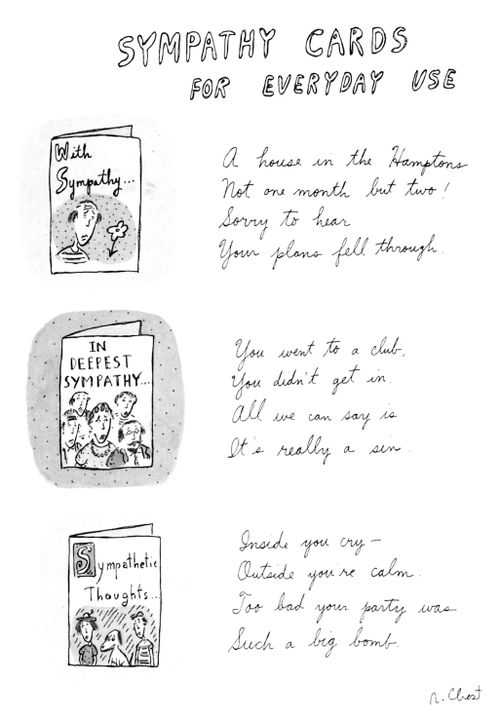 SYMPATHY CARDS
FOR EVERYDAY USE
With
Sympathy...
A house in the Hamptons
Not one month but two!
Sorry to hear
Your plans fell through.
IN
DEEPEST
SYMPATHY...
You went to a club,
You didn't get in.
All we can say is
It's really a sin.
Sympathetic
Thoughts...
Inside you cry—
Outside you're calm.
Too bad your party was
Such a big bomb.
R. Chast